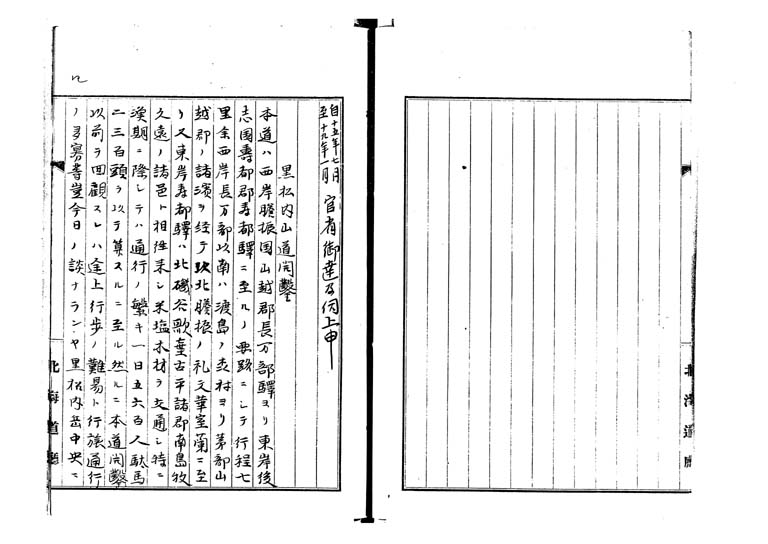 自十五年七月
至十九年一月 官省御達及伺上申
黒松内山道開鑿
本道ハ西岸膽振国山越郡長万部驛ヨリ東岸後
志国壽都郡壽都驛ニ至ルノ要路ニシテ行程七
里余西岸長万部以南ハ渡島ノ茅村ヨリ茅部山
越郡ノ諸濱ヲ経テ以北膽振ノ礼文華室蘭ニ至
リ又東岸壽都驛ハ北磯谷歌棄古平諸郡南島牧
久遠ノ諸邑ト相往来シ米塩木材ヲ交通シ特ニ
漁期ニ際シテハ通行ノ繁キ一日五六百人駄馬
二三百頭ヲ以テ算スルニ至ル然ルニ本道開鑿
以前ヲ回観スレハ途上行歩ノ難易ト行旅通行
ノ多寡豈今日ノ談ナランヤ黒松内岳中央ニ
北海道廳
北海道廳